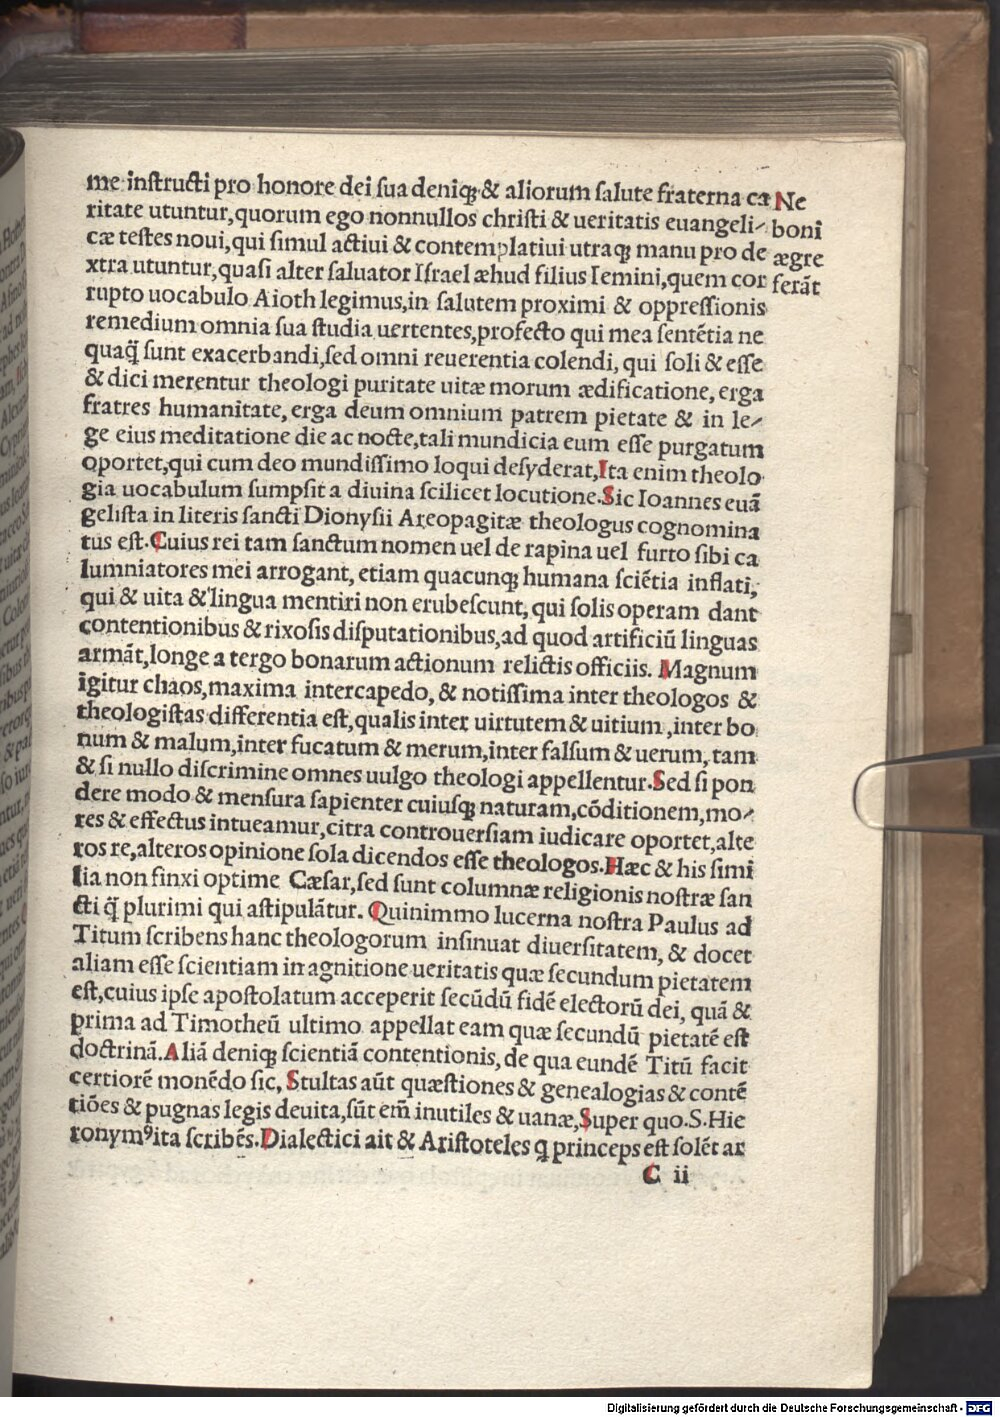 me instructi pro honore dei sua deniqꝫ & aliorum salute fraterna ca
ritate utuntur, quorum ego nonnullos christi & ueritatis euangeli-
cæ testes noui, qui simul actiui & contemplatiui utraqꝫ manu pro de
xtra utuntur, quasi alter saluator Israel æhud filius Iemini, quem cor
rupto uocabulo Aioth legimus, in salutem proximi & oppressionis
remedium omnia sua studia uertentes, profecto qui mea sentẽtia ne
quaq̃ sunt exacerbandi, sed omni reuerentia colendi, qui soli & esse
& dici merentur theologi puritate uitæ morum ædificatione, erga
fratres humanitate, erga deum omnium patrem pietate & in le-
ge eius meditatione die ac nocte, tali mundicia eum esse purgatum
oportet, qui cum deo mundissimo loqui desyderat, Ita enim theolo
gia uocabulum sumpsit a diuina scilicet locutione. Sic Ioannes euã
gelista in literis sancti Dionysii Areopagitæ theologus cognomina
tus est. Cuius rei tam sanctum nomen uel de rapina uel furto sibi ca
lumniatores mei arrogant, etiam quacunqꝫ humana sciẽtia inflati,
qui & uita & lingua mentiri non erubescunt, qui solis operam dant
contentionibus & rixosis disputationibus, ad quod artificiũ linguas
armãt, longe a tergo bonarum actionum relictis officiis. Magnum
igitur chaos, maxima intercapedo, & notissima inter theologos &
theologistas differentia est, qualis inter uirtutem & uitium, inter bo
num & malum, inter fucatum & merum, inter falsum & uerum, tam
& si nullo discrimine omnes uulgo theologi appellentur. Sed si pon
dere modo & mensura sapienter cuiusqꝫ naturam, cõditionem, mo-
res & effectus intueamur, citra controuersiam iudicare oportet, alte
ros re, alteros opinione sola dicendos esse theologos. Hæc & his simi
lia non finxi optime Cæsar, sed sunt columnæ religionis nostræ san
cti q̃ plurimi qui astipulãtur. Quinimmo lucerna nostra Paulus ad
Titum scribens hanc theologorum insinuat diuersitatem, & docet
aliam esse scientiam in agnitione ueritatis quæ secundum pietatem
est, cuius ipse apostolatum acceperit secũdũ fidẽ electorũ dei, quã &
prima ad Timotheũ ultimo appellat eam quæ secundũ pietatẽ est
doctrinã. Aliã deniqꝫ scientiã contentionis, de qua eundẽ Titũ facit
certiorẽ monẽdo sic, Stultas aũt quæstiones & genealogias & contẽ
tiões & pugnas legis deuita, sũt em̃ inutiles & uanæ, Super quo. S. Hie
ronymꝰ ita scribẽs. Dialectici ait & Aristoteles q princeps est solẽt ar
C ii
Ne
boni
ægre
ferãt
Digitalisierung gefördert durch die Deutsche Forschungsgemeinschaft - DFG